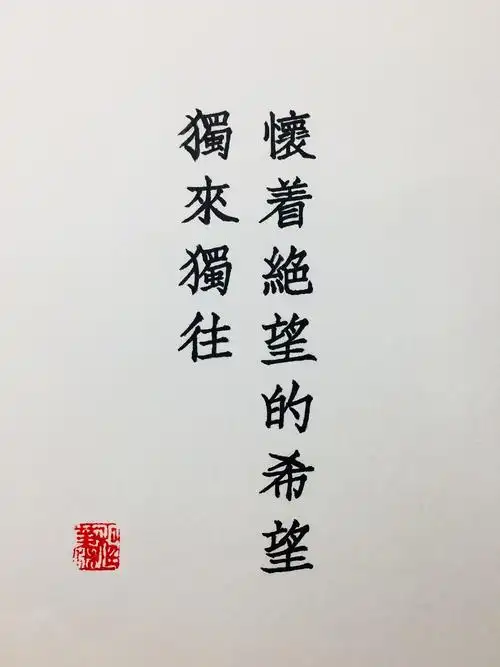 懷着絕望的希望
獨來獨往